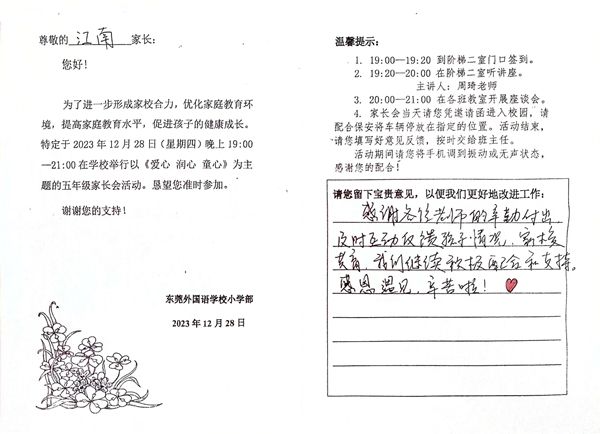 尊敬的 江南 家长:
您好!
为了进一步形成家校合力,优化家庭教育环
境,提高家庭教育水平,促进孩子的健康成长。
特定于 2023 年 12 月 28 日(星期四)晚上 19:00
—21:00 在学校举行以《爱心 润心 童心》为主
题的五年级家长会活动。恳望您准时参加。
谢谢您的支持!
东莞外国语学校小学部
2023 年 12 月 28 日
温馨提示:
1. 19:00—19:20 到阶梯二室门口签到。
2. 19:20—20:00 在阶梯二室听讲座。
主讲人:周琦老师
3. 20:00—21:00 在各班教室开展座谈会。
4. 家长会当天请您凭邀请函进入校园,请
配合保安将车辆停放在指定的位置。活动结束,
请您填写好意见反馈,按时交给班主任。
活动期间请您将手机调到振动或无声状态,
感谢您的配合!
请您留下宝贵意见,以便我们更好地改进工作:
感谢各位老师的辛勤付出
及时互动反馈孩子情况,家校
共育,我们继续积极配合和支持。
感恩遇见,辛苦啦!